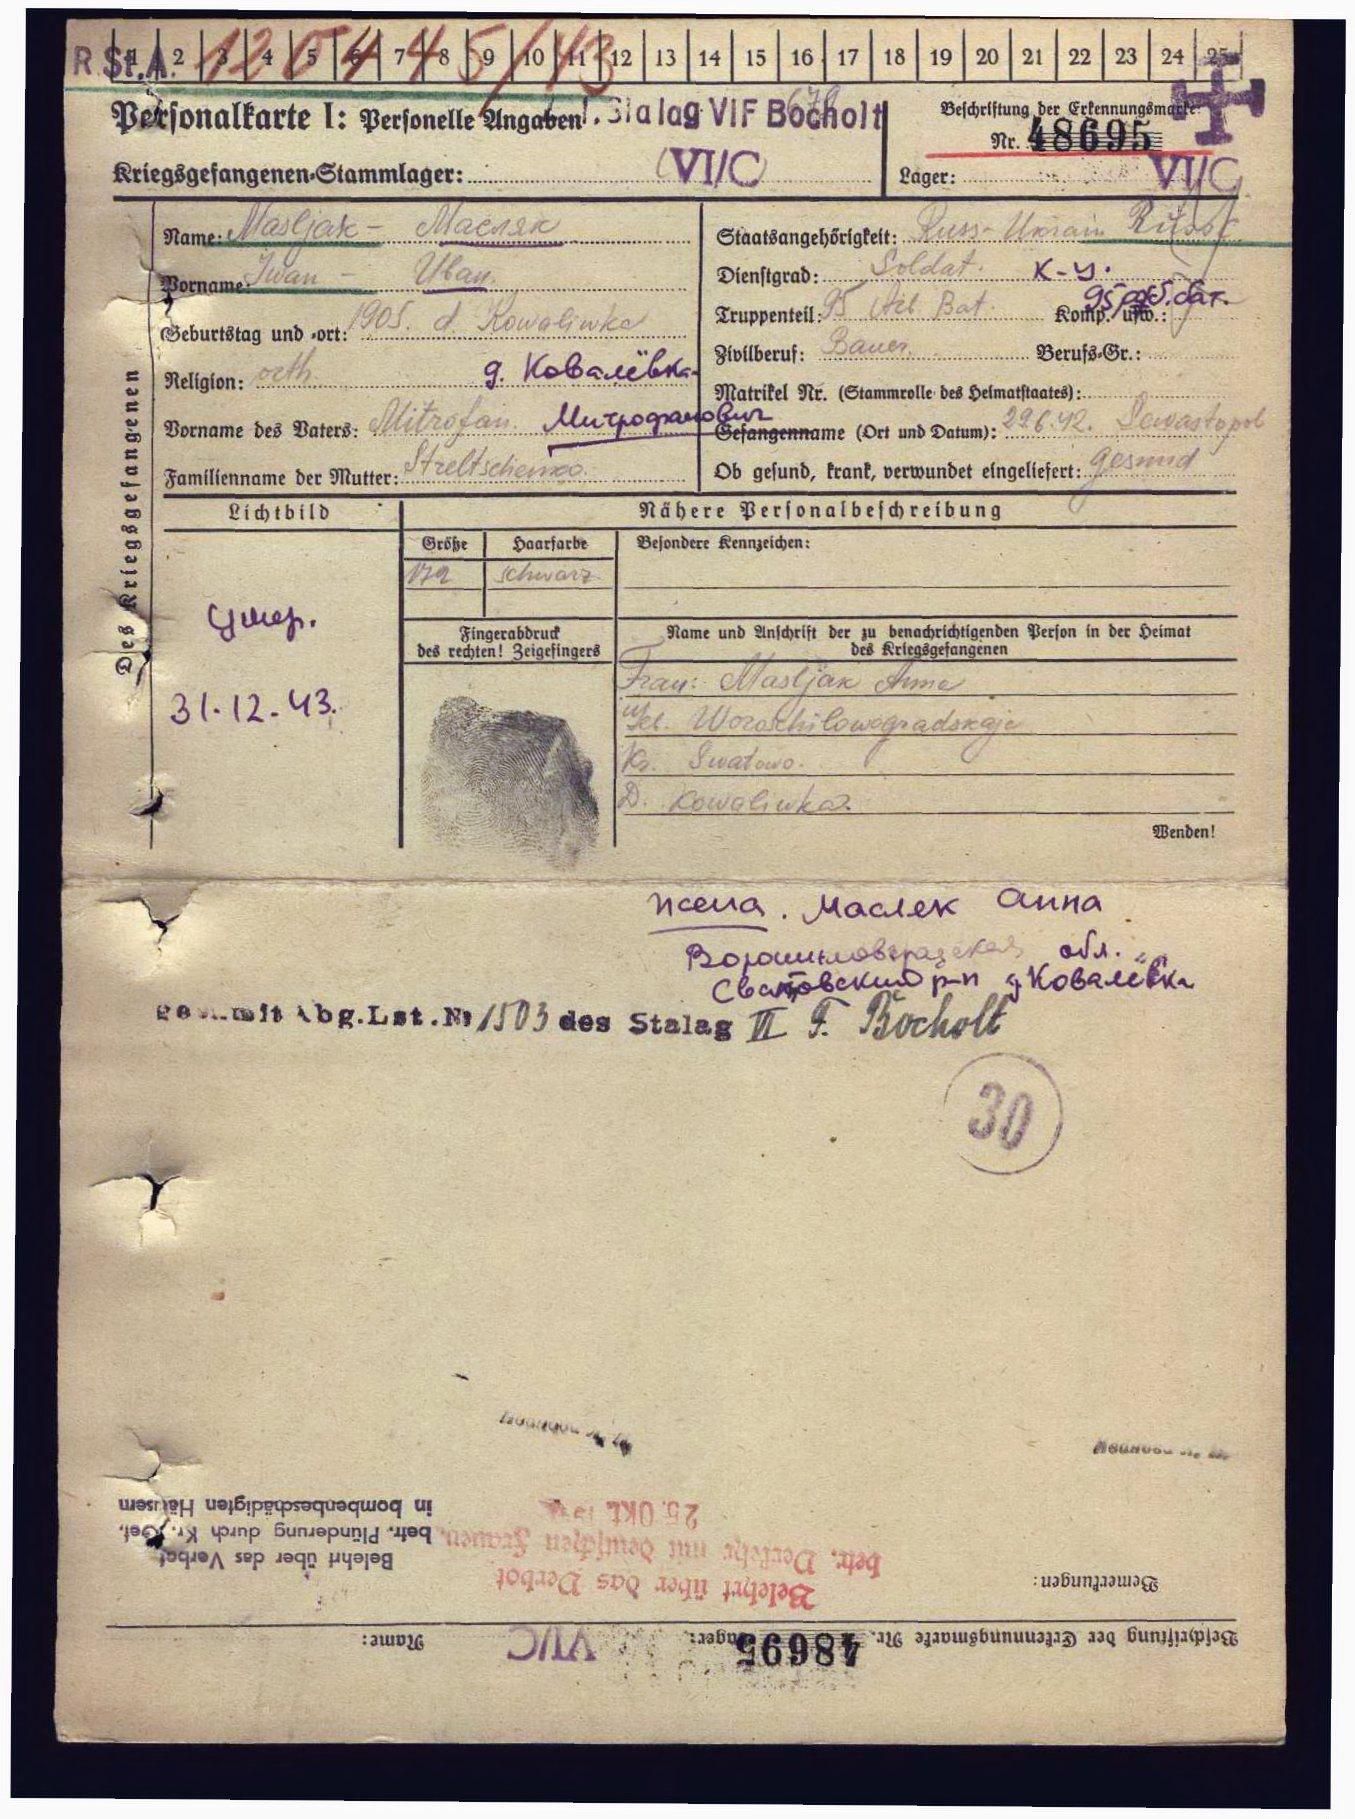 R.St.A. 120445/43
1 2 3 4 5 6 7 8 9 10 11 12 13 14 15 16 17 18 19 20 21 22 23 24 25
Personalkarte I: Personelle Angaben
Stalag VI F Bocholt
Beschriftung der Erkennungsmarke
Nr. 48695
Kriegsgefangenen-Stammlager: VI/C
Lager: VI/C
Des Kriegsgefangenen
Name: Masljak - Масляк
Vorname: Iwan - Иван
Geburtstag und -ort: 1905. d. Kowaliwka
Religion: orth. д. Ковалёвка
Vorname des Vaters: Mitrofan. Митрофанович
Familienname der Mutter: Streltschenko
Staatsangehörigkeit: Russ-Ukrain
Dienstgrad: Soldat. к-ц.
Truppenteil: 95 Arb Bat. Komp. usw.: 95 раб. бат.
Zivilberuf: Bauer. Berufs-Gr.:
Matrikel Nr. (Stammrolle des Heimatstaates):
Gefangennahme (Ort und Datum): 29.6.42. Sewastopol
Ob gesund, krank, verwundet eingeliefert: gesund
Lichtbild
Nähere Personalbeschreibung
Größe Haarfarbe Besondere Kennzeichen:
172 schwarz
Умер.
31.12.43.
Fingerabdruck
des rechten! Zeigefingers
Name und Anschrift der zu benachrichtigenden Person in der Heimat
des Kriegsgefangenen
Frau: Masljak Anna
Geb. Woroschilowogradskaje
Kr. Swatowo.
D. Kowaliwka.
Wenden!
жена. Масляк Анна
Ворошиловградская обл.
Сватовский р-н д Ковалёвка
gem. mit Abg.Lst.Nr 1503 des Stalag VI F. Bocholt
30
Belehrt über das Verbot
betr. Plünderung durch Kr. Gef.
in bombenbeschädigten Häusern
Belehrt über das Verbot
betr. Verkehr mit deutschen Frauen.
25. OKT.
Bemerkungen:
Beschriftung der Erkennungsmarke Nr. 48695 Lager: VI/C Name: